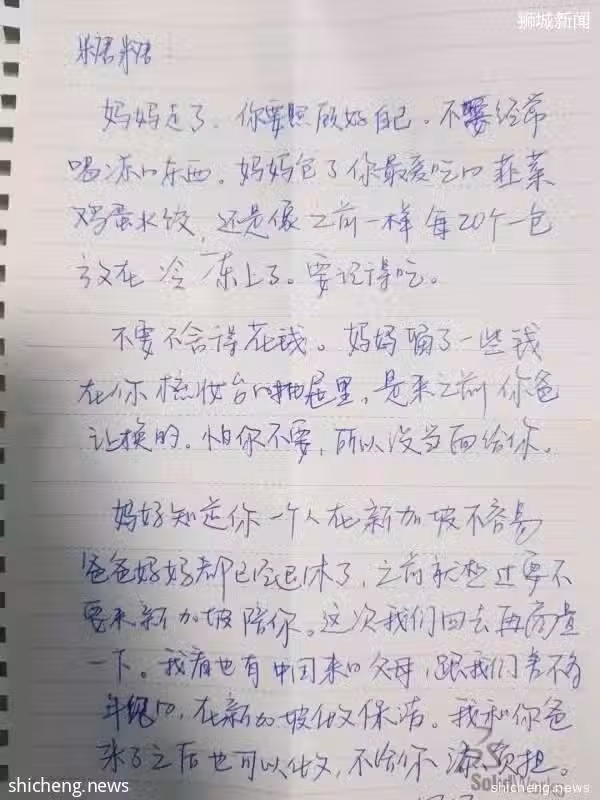 狮城新闻
糖糖
妈妈走了，你要照顾好自己。不要经常
喝冻的东西。妈妈包了你最爱吃的韭菜
鸡蛋水饺，还是像之前一样每20个一包
放在冷冻上了。要记得吃。
不要不舍得花钱。妈妈留了一些钱
在你梳妆台的抽屉里，是来之前你爸
让换的。怕你不要，所以没当面给你。
妈妈知道你一个人在新加坡不容易
爸爸妈妈都已经退休了，之前就想过要不
要来新加坡陪你。这次我们回去再商量
一下。我看也有中国来的父母，跟我们差不多
年纪的，在新加坡做保洁。我和你爸
来了之后也可以做，不给你添负担。
SolidWorks
shicheng.news
shicheng.news